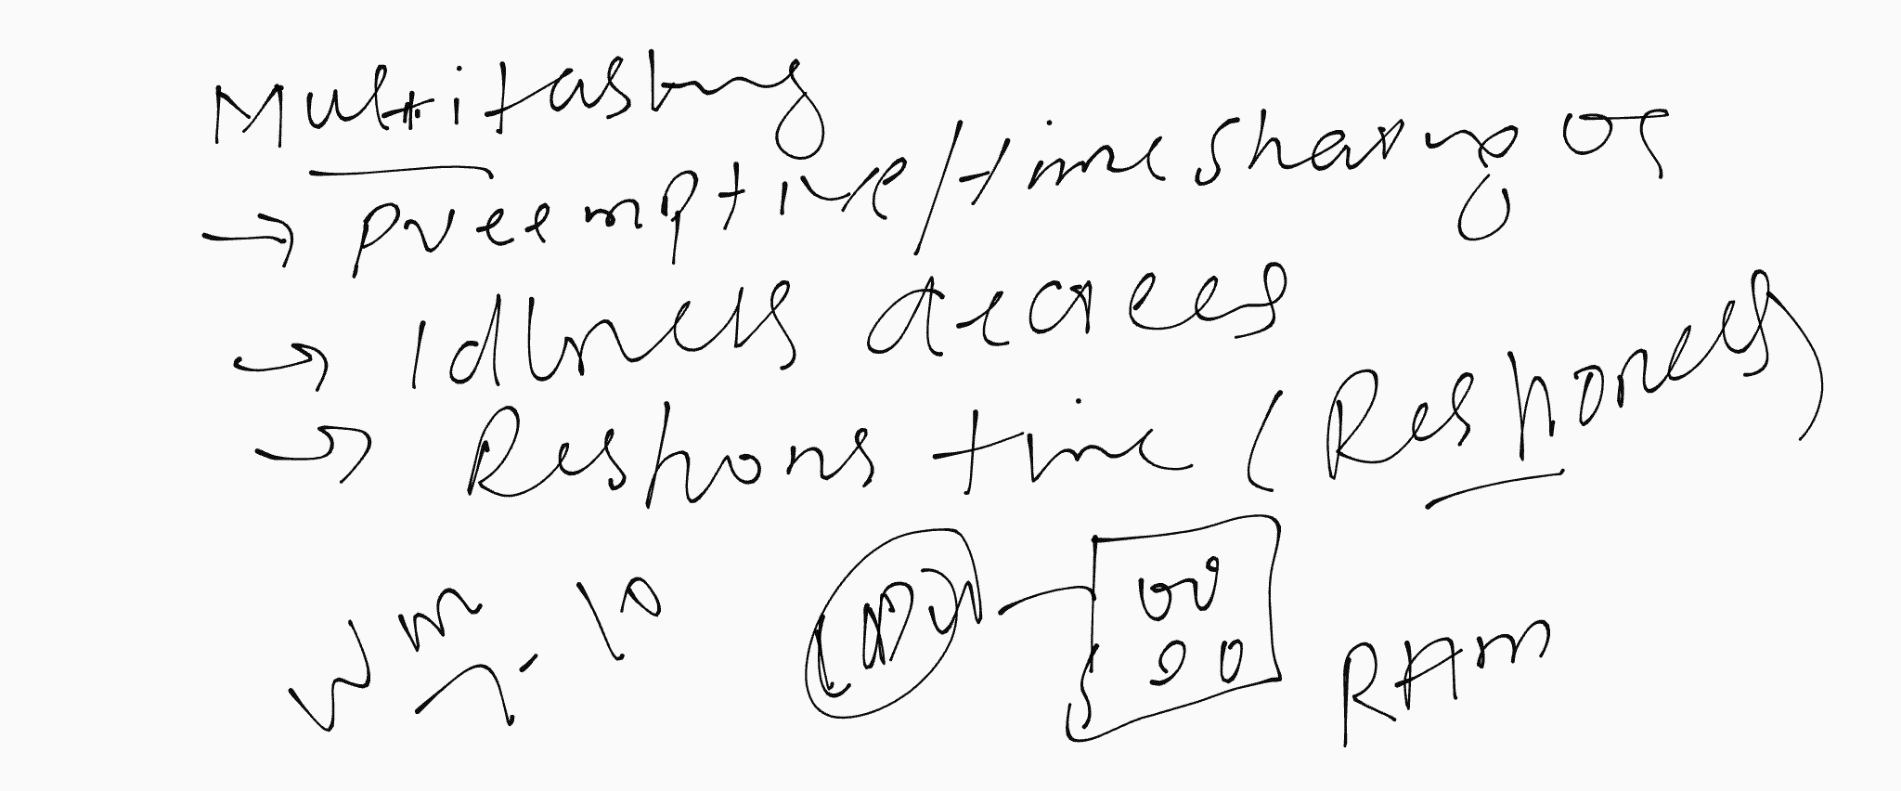 Multitasking
→ Preemptive/time sharing OS
→ Idlness decrees
→ Respons time (Responess)
CPU
RAM